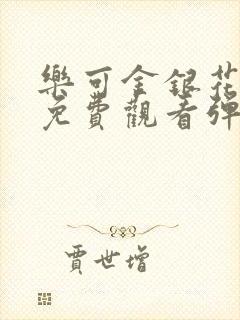 樂可金銀花
免費觀看彈
賈世增